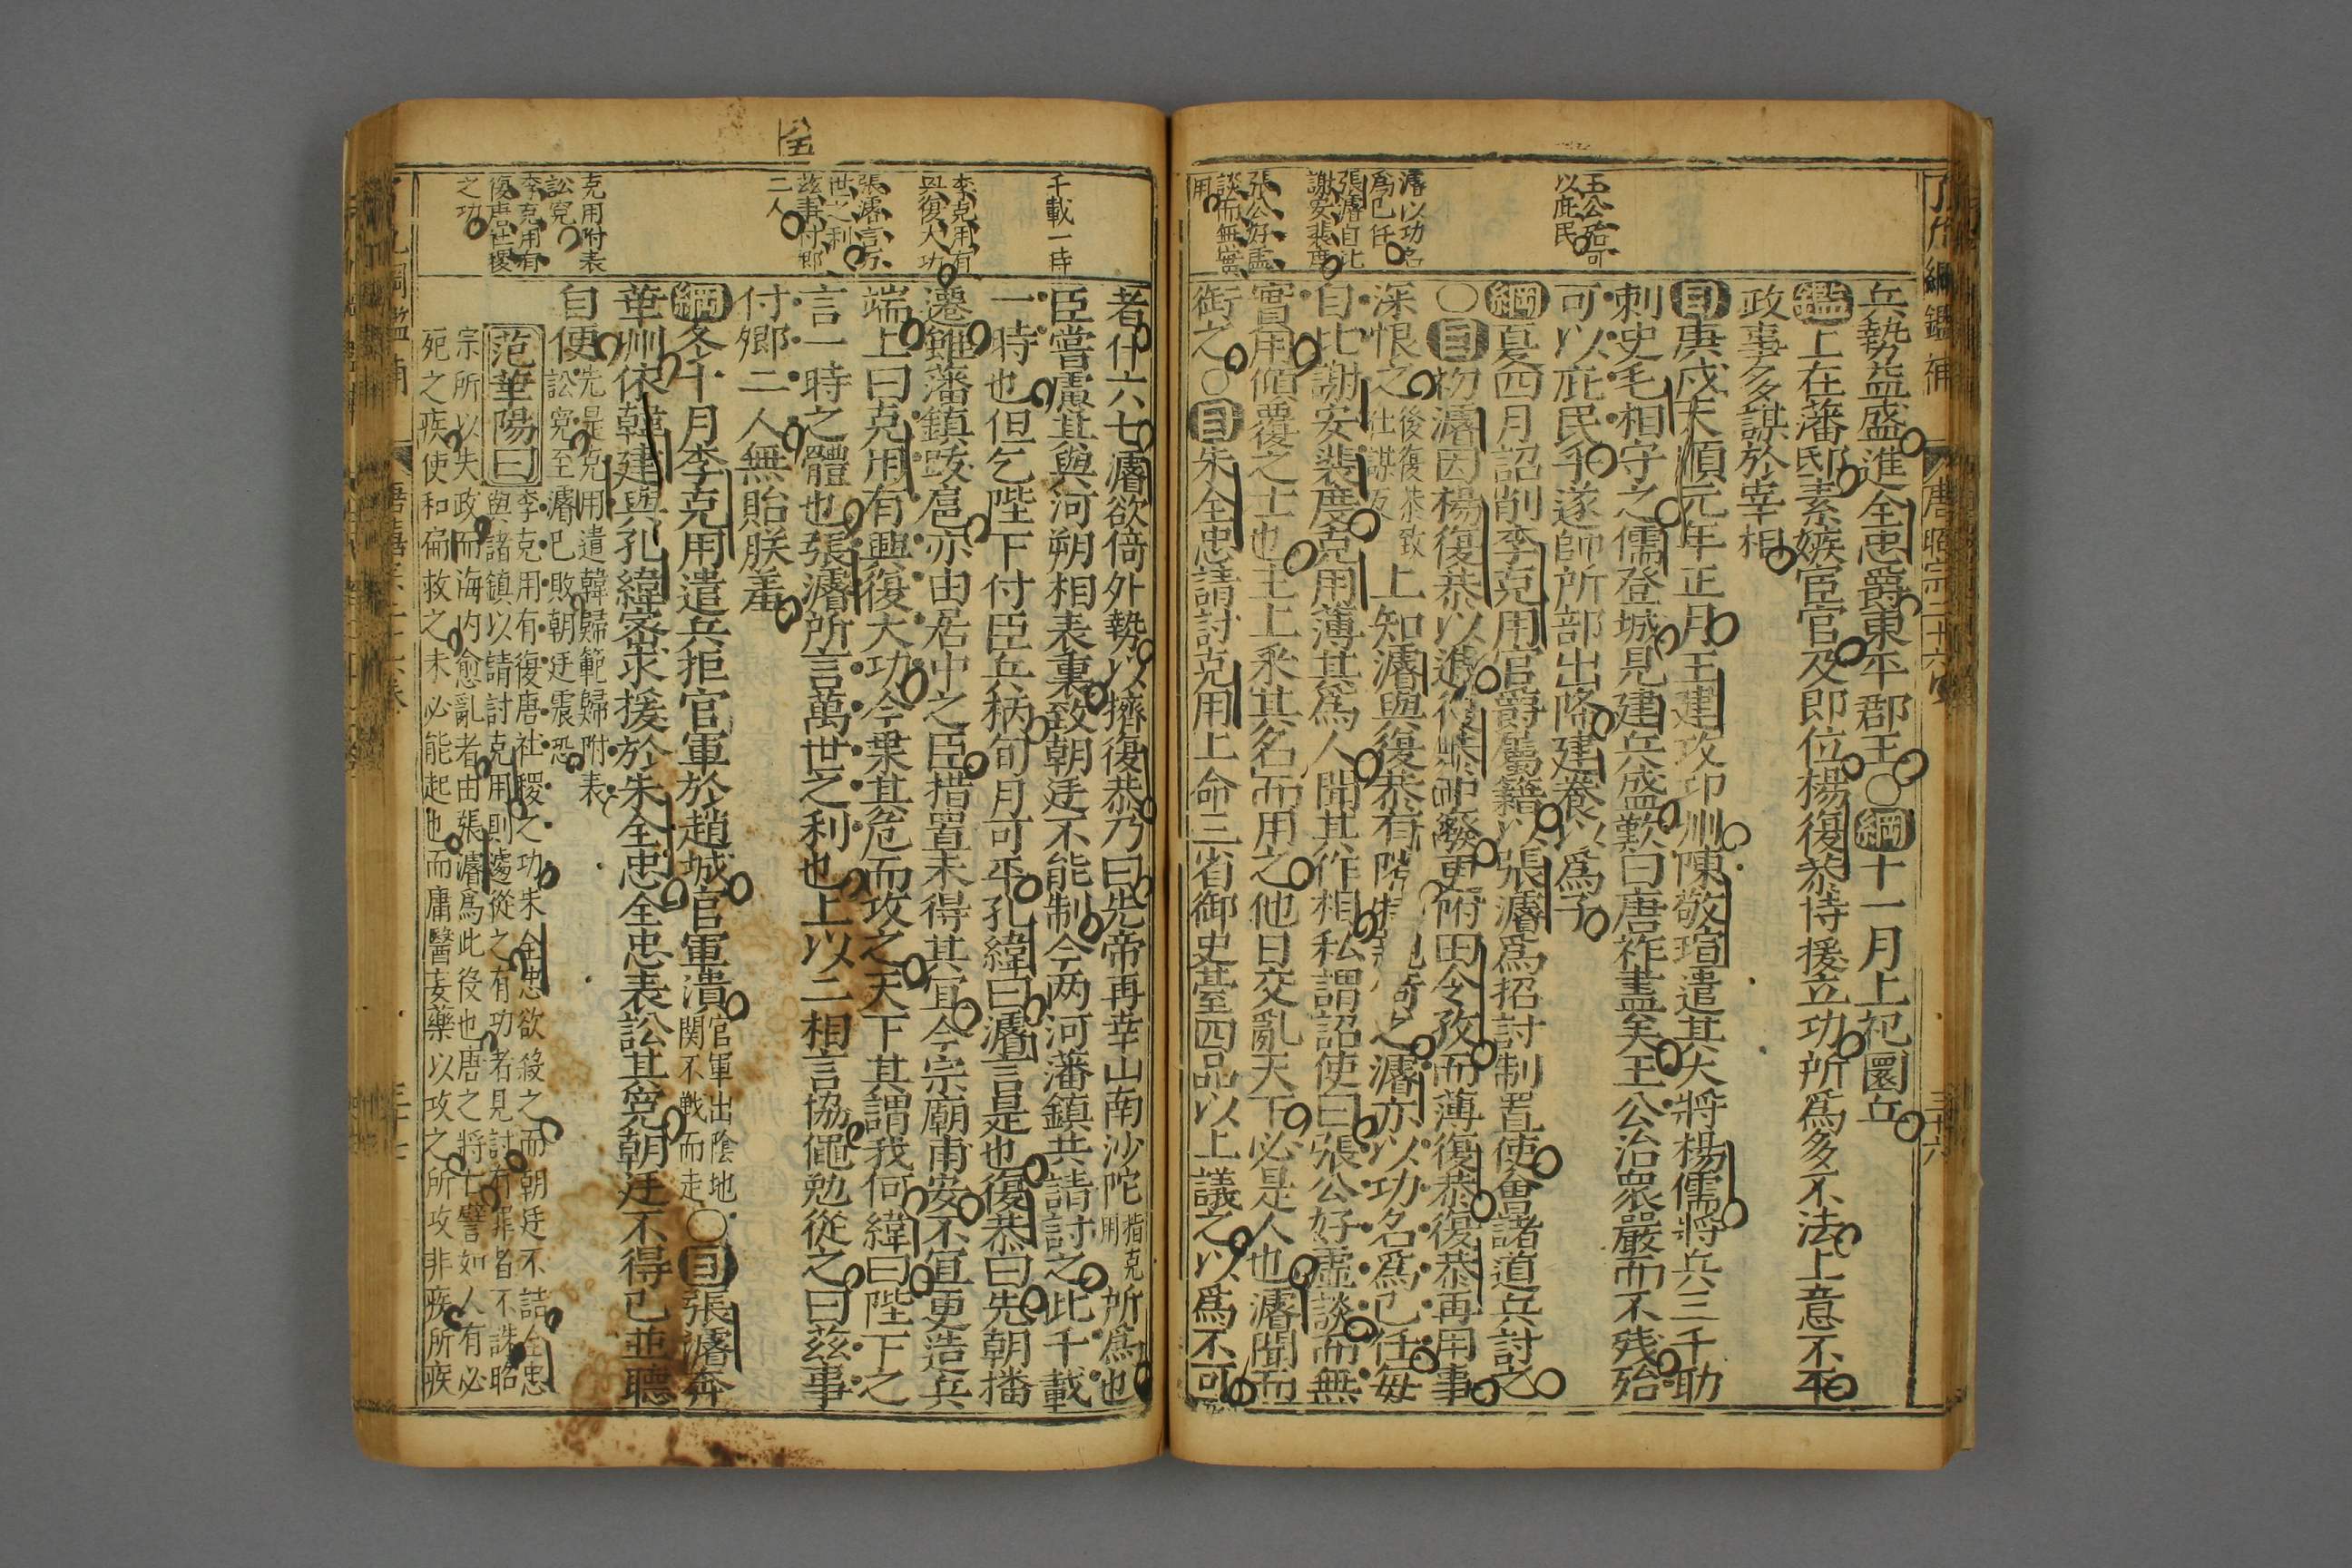 了凡綱鑑補
唐昭宗二十六卷
三十六
王公治可
以庇民
濬以功名
爲己任
張濬自比
謝安裴度
張公好虛
談而無實
用
兵勢益盛進全忠爵東平郡王〇綱十一月上祀圜丘
鑑上在藩邸素嫉宦官及即位楊復恭恃援立功所爲多不法上意不平
政事多謀於宰相
目庚戌大順元年正月王建攻卭州陳敬瑄遣其大將楊儒將兵三千助
刺史毛相守之儒登城見建兵盛歎曰唐祚盡矣王公治衆嚴而不殘殆
可以庇民乎遂帥所部出降建養以爲子
綱夏四月詔削李克用官爵屬籍以張濬爲招討制置使會諸道兵討之
〇目初濬因楊復恭以進後復恭中廢更附田令孜而薄復恭復恭再用事
深恨之後復恭致仕謀反上知濬與復恭有隙親倚之濬亦以功名爲己任每
自比謝安裴度克用薄其爲人聞其作相私謂詔使曰張公好虛談而無
實用傾覆之士也主上采其名而用之他日交亂天下必是人也濬聞而
銜之〇目朱全忠請討克用上命三省御史臺四品以上議之以爲不可
千載一時
李克用有
興復大功
張濬言萬
世之利
茲事付卿
二人
克用附表
訟寃
李克用有
復唐社稷
之功
者什六七濬欲倚外勢以擠復恭乃曰先帝再幸山南沙陀指克用所爲也
臣嘗慮其與河朔相表裏致朝廷不能制今两河藩鎮共請討之此千載
一時也但乞陛下付臣兵柄旬月可平孔緯曰濬言是也復恭曰先朝播
遷雖藩鎮跋扈亦由居中之臣措置未得其宜今宗廟甫安不宜更造兵
端上曰克用有興復大功今乗其危而攻之天下其謂我何緯曰陛下之
言一時之體也張濬所言萬世之利也上以二相言協僶勉從之曰茲事
付卿二人無貽朕羞
綱冬十月李克用遣兵拒官軍於趙城官軍潰官軍出陰地関不戰而走〇目張濬奔
華州依韓建與孔緯宻求援於朱全忠全忠表訟其寃朝廷不得已並聽
自便先是克用遣韓歸範歸附表訟寃至濬已敗朝廷震恐
范華陽曰李克用有復唐社稷之功朱全忠欲殺之而朝廷不詰全忠
與諸鎮以請討克用則遽從之有功者見討有罪者不誅昭
宗所以失政而海内愈亂者由張濬爲此役也唐之將亡譬如人有必
死之疾使和扁救之未必能起也而庸醫妄藥以攻之所攻非疾所疾